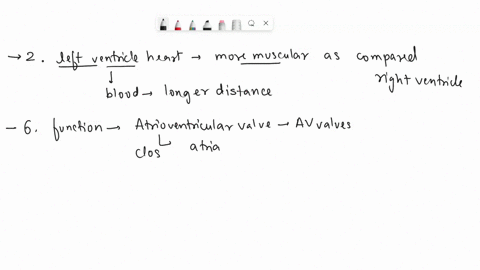 → 2. left ventricle heart → more muscular as compared
right ventricle
↓
blood → longer distance
- 6. function → Atrioventricular valve → AV valves
clos atria